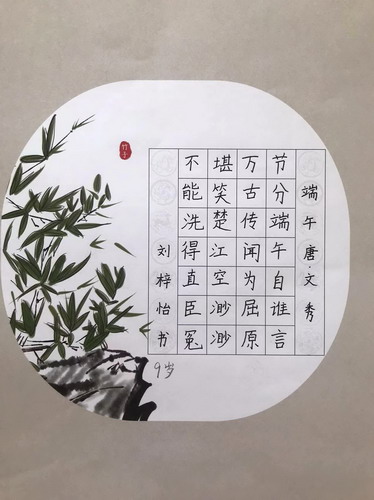 端午 唐·文秀
节分端午自谁言
万古传闻为屈原
堪笑楚江空渺渺
不能洗得直臣冤
刘梓怡书
9岁
竹子